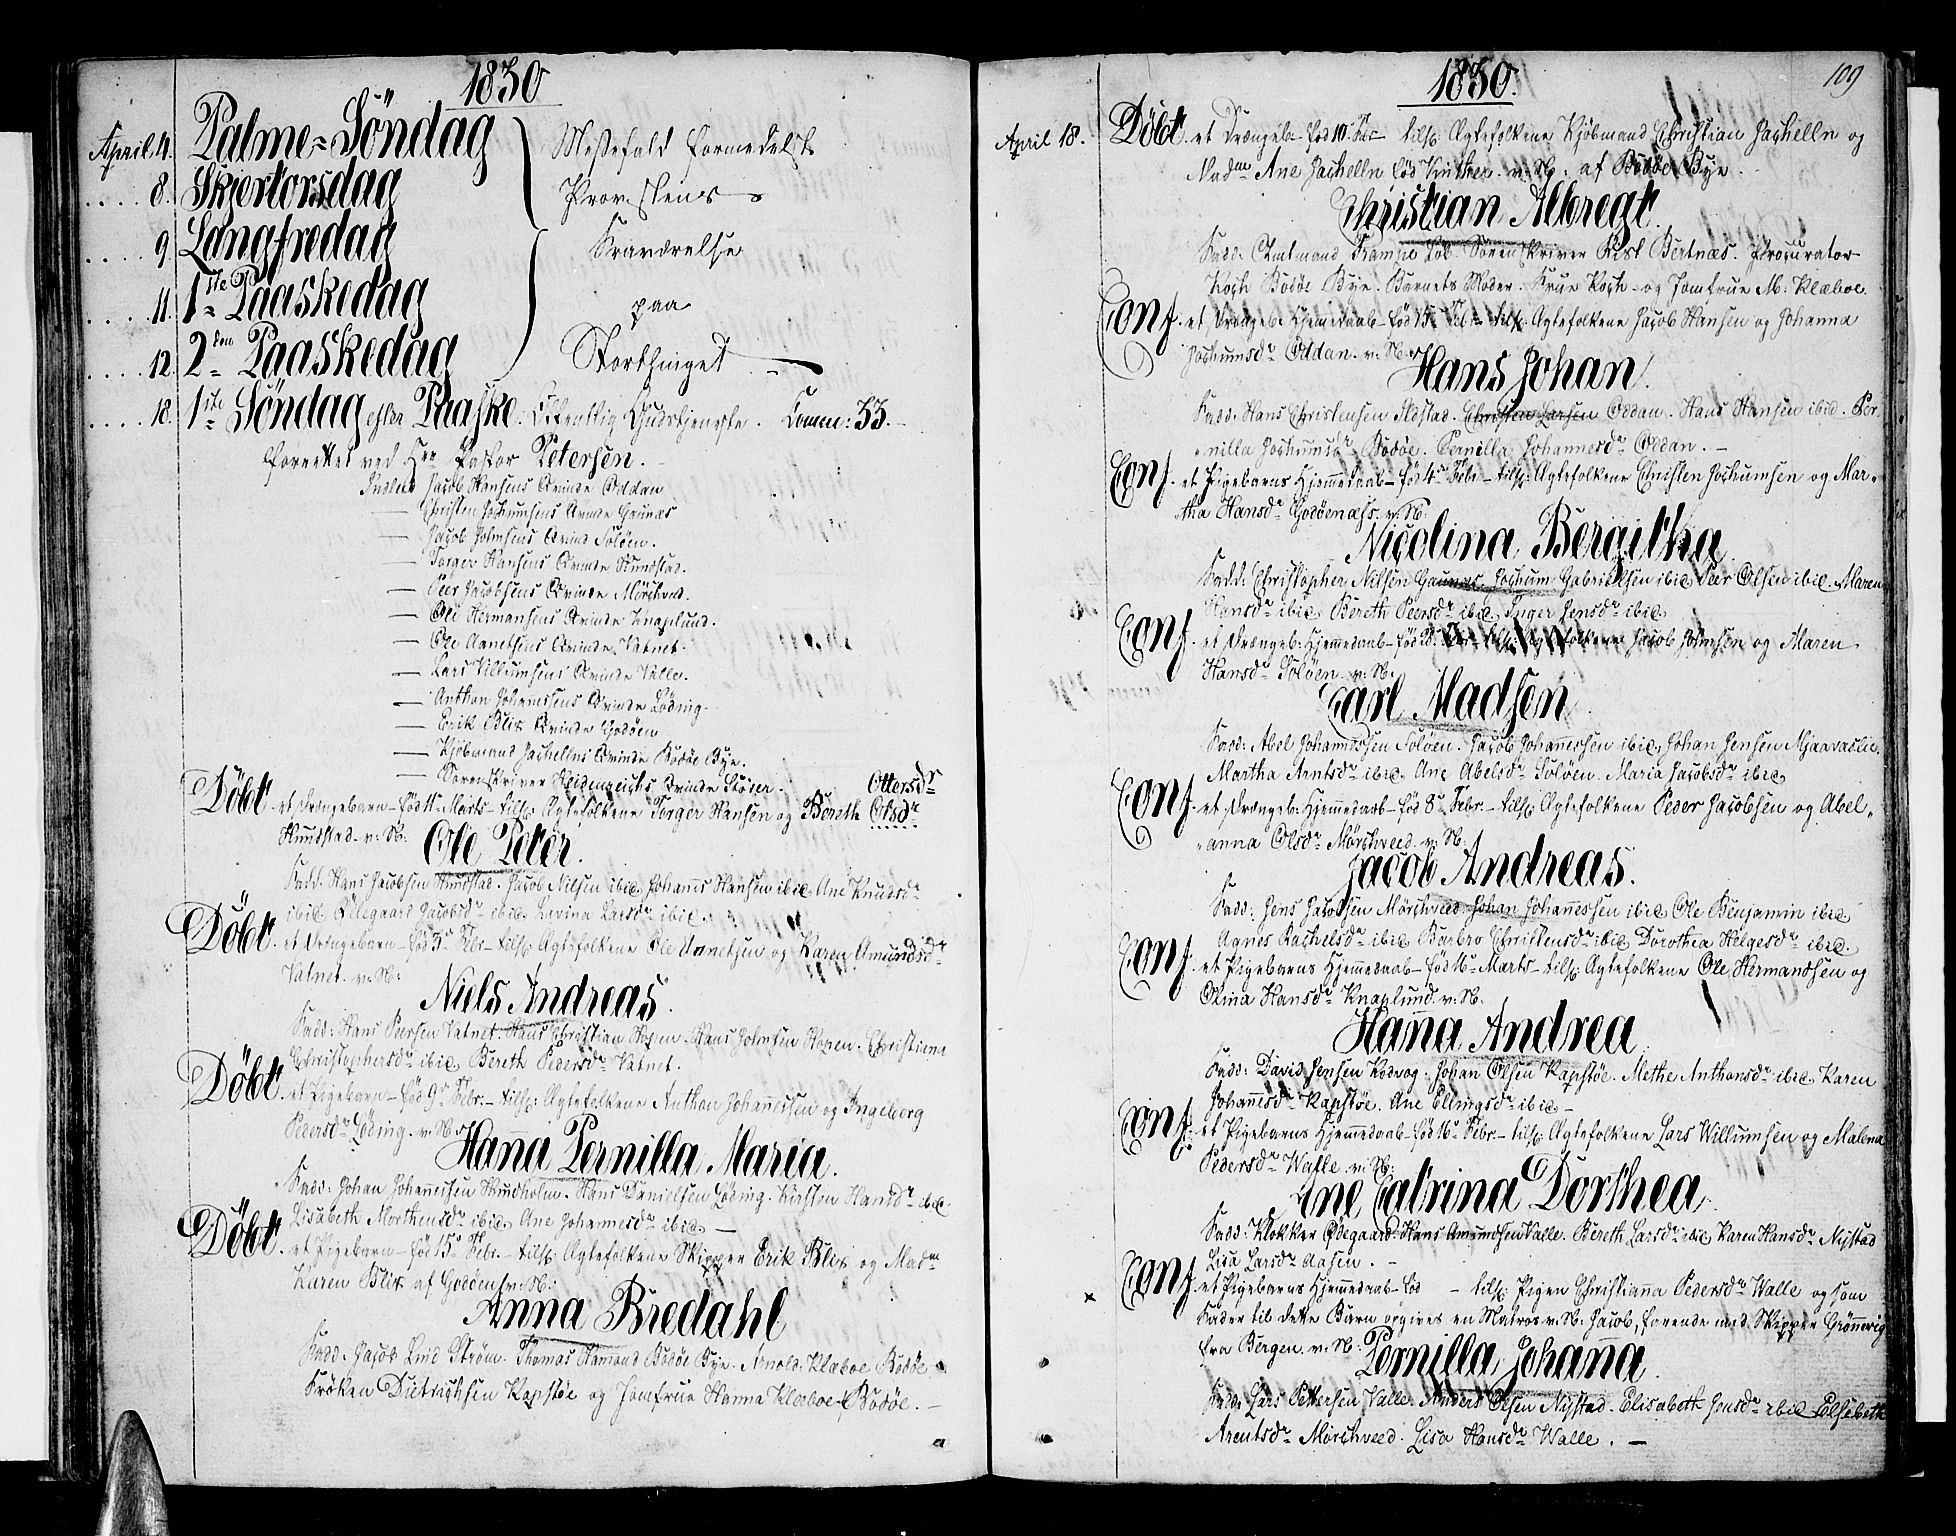 1830
April 4. Palme-Söndag Messefald formedelst
8. Skjertorsdag Provstens
9. Langfredag Fraværelse
11. 1ste Paaskedag paa
12. 2den Paaskedag Storthinget
18. 1ste Söndag efter Paaske. Offentlig Gudstjeneste. Comm: 33.
forrettet ved Hr Pastor Petersen.
Indledt Jacob Hansens Qvinde Oddan
— Christen Jochumsens Qvinde Gaunæs
— Jacob Johnsens Qvinde Solöen.
— Torger Hansens Qvinde Hundstad.
— Peer Jacobsens Qvinde Mörchved.
— Ole Hermansens Qvinde Knaplund.
— Ole Anethsens Qvinde Vatnet.
— Lars Villumsens Qvinde Valle.
— Anthon Johannessens Qvinde Löding.
— Erik Blix Qvinde Godöen
— Kjöbmand Jachellns Qvinde Bodöe Bye.
— Sorenskriver Heidenreichs Qvinde Störer.
Döbt et Drængebarn – föd 11 Marts – tilh: Ægtefolkene Torger Hansen og Bereth Olsdr Ottersdr
Hundstad. v: N:
Ole Peter.
Fadd: Hans Jacobsen Hundstad. Jacob Nilsen ibid, Johannes Hansen ibid Ane Knudsdr
ibid Ellegaard Jacobsdr ibid. Lavina Larsdr ibid
Döbt. et Drængebarn – föd 3 Febr – tilh: Ægtefolkene Ole Anethsen og Karen Amundsdr
Vatnet. v: N:
Niels Andreas.
Fadd: Hans Peersen Vatnet. Hans Christian Hopen. Hans Johnsen Hopen. Christiana
Christophersdr ibid. Bereth Pedersdr Vatnet.
Döbt. et Pigebarn – föd 9 Febr. – tilh: Ægtefolkene Anthon Johannessen og Ingeberg
Pedersdr Löding. v: N:
Hanna Pernilla Maria.
Fadd: Johan Johannessen Hundholm. Hans Danielsen Löding. Kirsten Hansdr ibid.
Lisabeth Morthensdr ibid, Ane Johannesdr ibid. —
Döbt. et Pigebarn – föd 15 Febr. – tilh: Ægtefolkene Skipper Erik Blix og Madm
Karen Blix af Godöen v: N:
Anna Bredahl
Fadd: Jacob Lind Ström. Thomas Hamond Bodöe Bye. Arnold Klæboe Bodöe
Fröken Dietrichsen Kapstöe og Jomfrue Hanna Klæboe Bodöe. —
1830. 109
April 18. Döbt. et Drængeb – föd 10 – tilh: Ægtefolkene Kjöbmand Christian Jachelln og
Madm Ane Jachelln föd v: N: af Bodöe Bye.
Christian Albregt.
Fadd: Amtmand Sorenskriver Rist Bertnæs. Procurator
Koch Bodöe Bye. Barnets Moder. Frue Koch og Jomfrue M: Klæboe.
Conf. et Drængeb: Hjemmedaab – föd 13 Febr – tilh: Ægtefolkene Jacob Hansen og Johanna
Jochumsdr Oddan. v: N:
Hans Johan.
Fadd: Hans Christensen Alstad. Christen Larsen Oddan. Hans Hansen ibid. Per-
nilla Jochumsdr Bodöe. Pernilla Johannesdr Oddan. —
Conf. et Pigebarns Hjemmedaab – föd 4 Febr – tilh: Ægtefolkene Christen Jochumsen og Mar-
tha Hansdr Godöenæss. v: N:
Nicolina Bergitha
Fadd: Christopher Nilsen Gaunæs. Jochum Gabrielsen ibid Peer Olsen ibid. Maren
Hansdr ibid, Bereth Peersdr ibid. Inger Jensdr ibid
Conf. et Drængeb: Hjemmedaab – föd – tilh: Ægtefolkene Jacob Johnsen og Maren
Hansdr Solöen. v: N:
Carl Madsen
Fadd: Abel Johannessen Solöen. Jacob Johannessen ibid, Johan Jensen
Martha Arntsdr ibid. Ane Abelsdr Solöen. Maria Jacobsdr ibid
Conf. et Drængeb: Hjemmedaab – föd 8 Febr – tilh: Ægtefolkene Peder Jacobsen og Abel-
anna Olsdr Mörchveed. v: N:
Jacob Andreas.
Fadd: Jens Jacobsen Mörchveed. Johan Johannessen ibid Ole Benjamin ibid
Agnes Rachelsdr ibid Barbro Christensdr ibid Dorothea Helgesdr ibid.
Conf. et Pigebarns Hjemmedaab – föd 16 Marts – tilh: Ægtefolkene Ole Hermandsen og
Olina Hansdr Knaplund. v: N:
Hanna Andrea
Fadd: David Jensen Kodvog. Johan Olsen Kapstöe. Methe Anthonsdr ibid. Karen
Johannesdr Kapstöe. Ane Ellingsdr ibid –
Conf. et Pigebarns Hjemmedaab – föd 16 Febr. – tilh: Ægtefolkene Lars Willumsen og Malena
Pedersdr Walle. v: N:
Ane Catrina Dorthea.
Fadd: Klokker Ödegaard. Hans Amundsen Valle. Bereth Larsdr ibid Karen Hansdr Nystad
Lisa Larsdr Aasen. –
× Conf. et Pigebarns Hjemmedaab – föd – tilh: Pigen Christianna Pedersdr Walle og som
Fader til dette Barn opgives en Matros v: N: Jacob, farende med Skipper Grönnevig
fra Bergen. v: N:
Pernilla Johanna.
Fadd: Lars Pettersen Valle. Anders Olsen Nystad. Elisabeth Jensdr ibid Elsebeth
Arentsdr Mörchveed. Lisa Hansdr Walle. —